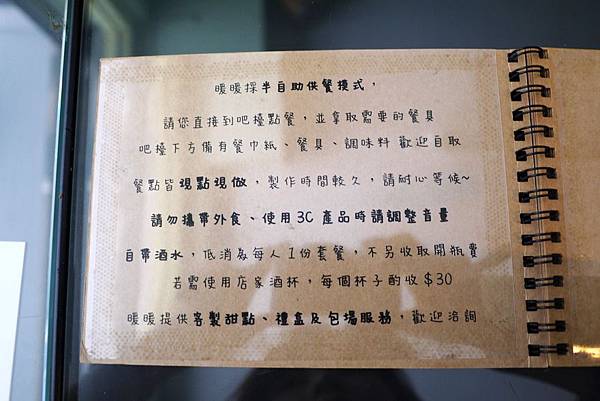 暖暖採半自助供餐模式，
請您直接到吧檯點餐，並拿取需要的餐具
吧檯下方備有餐巾紙、餐具、調味料 歡迎自取
餐點皆現點現做，製作時間較久，請耐心等候~
請勿攜帶外食、使用3C產品時請調整音量
自帶酒水，低消為每人1份套餐，不另收取開瓶費
若需使用店家酒杯，每個杯子酌收$30
暖暖提供客製甜點、禮盒及包場服務，歡迎洽詢